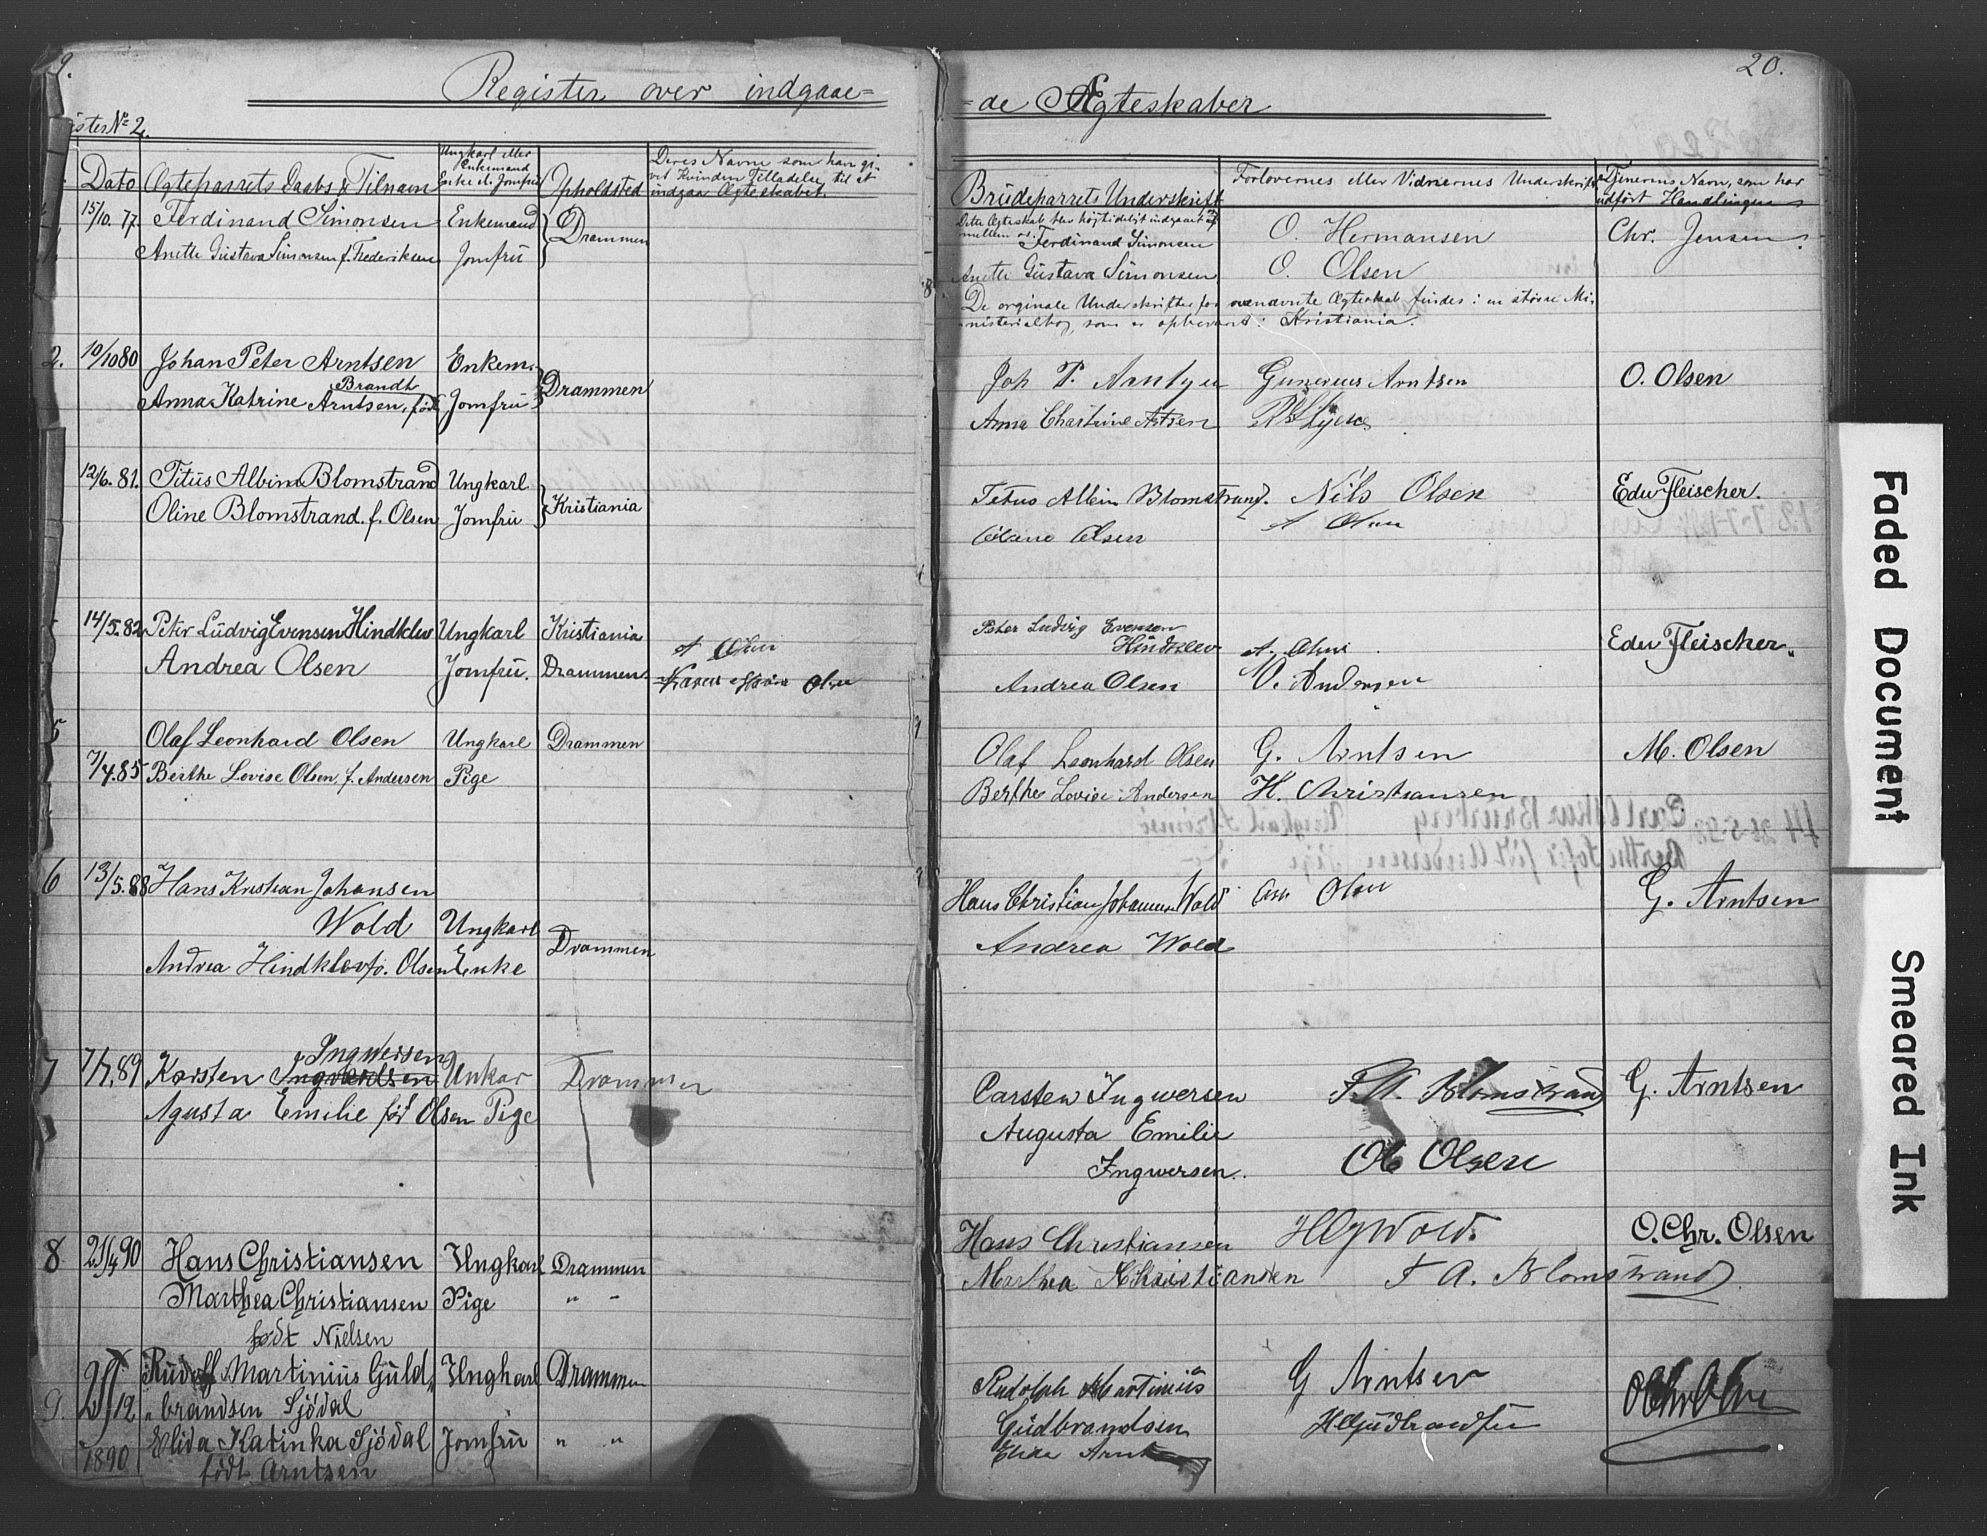 9.
Register over indgaae=
ister № 2.
Dato
Ægteparrets Daabs & Tilnavn
Ungkarl eller
Enkemand
Enke el. Jomfru
Opholdsted
Deres Navne som har gi-
vet Kvinden Tilladelse til at
indgaa Ægteskabet.
15/10. 77. Ferdinand Simonsen Enkemand Drammen
Anette Gustava Simonsen f. Frederiksen Jomfru
2. 10/10 80 Johan Peter Arntsen Enkem. Drammen
Brandt
Anna Katrine Arntsen, født Jomfru
12/6. 81. Titus Albin Blomstrand Ungkarl Kristiania
Oline Blomstrand. f. Olsen Jomfru
14/5. 82 Peter Ludvig Evensen Hindklev Ungkarl Kristiania
A Olsen
Andrea Olsen Jomfru. Drammen
Karen Olsen
5 Olaf Leonhard Olsen Ungkarl Drammen
7/4. 85 Berthe Lovise Olsen f. Andersen Pige
6 13/5. 88 Hans Kristian Johansen
Wold Ungkarl
Drammen
Andrea Hindklev fo. Olsen Enke
Ingwersen
7 7/7. 89 Karsten Ingvardsen Unkar Drammen
Agusta Emilie fød Olsen Pige
8 21/4 90 Hans Christiansen Ungkarl Drammen
Marthea Christiansen Pige " "
født Nielsen
Rudolf Martinius Guld„ Ungkarl Drammen
9. 25/12 „brandsen Sjödal
Elida Katinka Sjödal Jomfru " "
1890 født Arntsen
20.
=de Ægteskaber
Brudeparrets Underskrift
Forlovernes eller Vidnernes Underskrift
Tjenerens Navn, som har
udført Handlingen
Dette Ægteskab blev høitideligt indgaaet af
mellem os.
Ferdinand Simonsen O. Hermansen Chr. Jensen.
Anette Gustava Simonsen O. Olsen
De orginale Underskrifter for ovenævnte Ægteskab findes i en større Mi-
nisterialbog, som er opbevaret i Kristiania.
Joh P. Arntzen Gunerius Arntsen O. Olsen
Anna Chatrine Artsen
Titus Albin Blomstrand. Nils Olsen Edw Fleischer.
A Olsen
Oline Olsen
Peter Ludvig Evensen
Hindklev A. Olsen Edw Fleischer.
Andrea Olsen O. Andersen
Olaf Leonhard Olsen G. Arntsen M. Olsen
Berthe Lovise Andersen H. Christiansen
Hans Christian Johannsen Wold Olsen G. Arntsen
Andrea Wold
Carsten Ingwersen T. A. Blomstrand G. Arntsen
Augusta Emilie
Ingwersen. Ole Olsen
Hans Christiansen Wold. O. Chr. Olsen
Marthea Christiansen T A. Blomstrand
Rudolph Martinius G Arntsen O Chr Olsen
Gudbrandsen H Gudbrandsen
Elida Arnt
Faded Document
Smeared Ink